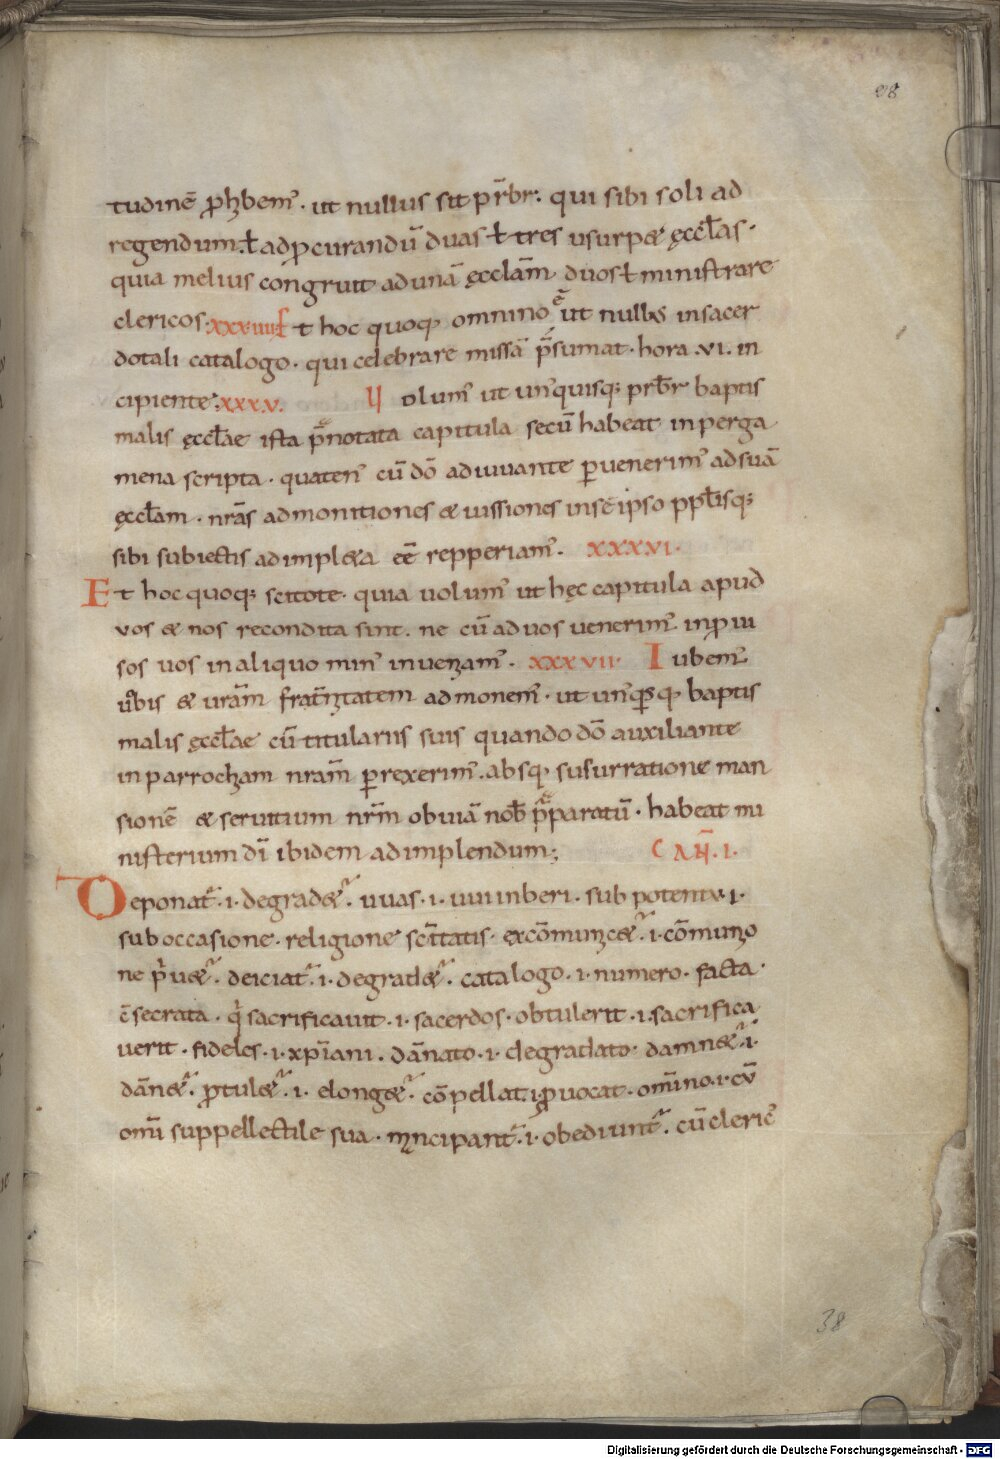 98
tudinē ꝓhibem᾽. ut nullus sit pr̄br: qui sibi soli ad
regendum. ł ad ꝓcurandū duas ł tres usurpæ ęccłas.
quia melius congruit ad unā ęcclām duos ł ministrare
clericos. xxxiiii. Et hoc quoq; omnino ē ut nullus in sacer
dotali catalogo. qui celebrare missā p̄sumat. hora .vi. in
cipiente. xxxv. Uolum᾽ ut un᾽quisq; prb̄r baptis
malis ęccłae ista p̄notata capitula secū habeat in perga
mena scripta. quaten᾽ cū dō adiuuante ꝑuenerim᾽ ad suā
ęccłam. nrās admonitiones & iussiones in sē ipso pplisq;
sibi subiectis adimpl&a eē repperiam᾽. xxxvi.
Et hoc quoq; scitote. quia uolum᾽ ut hęc capitula apud
vos & nos recondita sint. ne cū ad uos uenerim᾽ inꝓui
sos uos in aliquo min᾽ inueniam᾽. xxxvii. Iubem᾽
uobis & urām frat̄nitatem admonem᾽. ut un᾽qisq; baptis
malis ęccłae cū titulariis suis quando dō auxiliante
in parrochiam nrām ꝑrexerim᾽. absq; susurratione man
sionē & seruitium nrm̄ obuiā nob̄ p̄paratū. habeat mi
nisterium dī ibidem adimplendum;  CAN̄.I.
Deponat᾽. i. degrad&᾽. uuas. i. uuinberi. sub potentu. i.
sub occasione. religione sc̄itatis. excōmunic&᾽. i. cōmunio
ne p̄u&᾽. deiciat᾽. i. degrad&᾽. catalogo. i. numero. facta.
c̄secrata. q̄ sacrificauit. i. sacerdos. obtulerit. i. sacrifica
uerit. fideles. i. xp̄iani. dānato. i. degradato. damn&᾽. i.
dān&᾽. ꝓtul&᾽. i. elong&᾽. cōpellat. i. ꝓuocat. om̄ino. i. cū
omī suppellectile sua. mancipant᾽. i. obediunt᾽. cū cleric᾽
38
Digitalisierung gefördert durch die Deutsche Forschungsgemeinschaft - DFG